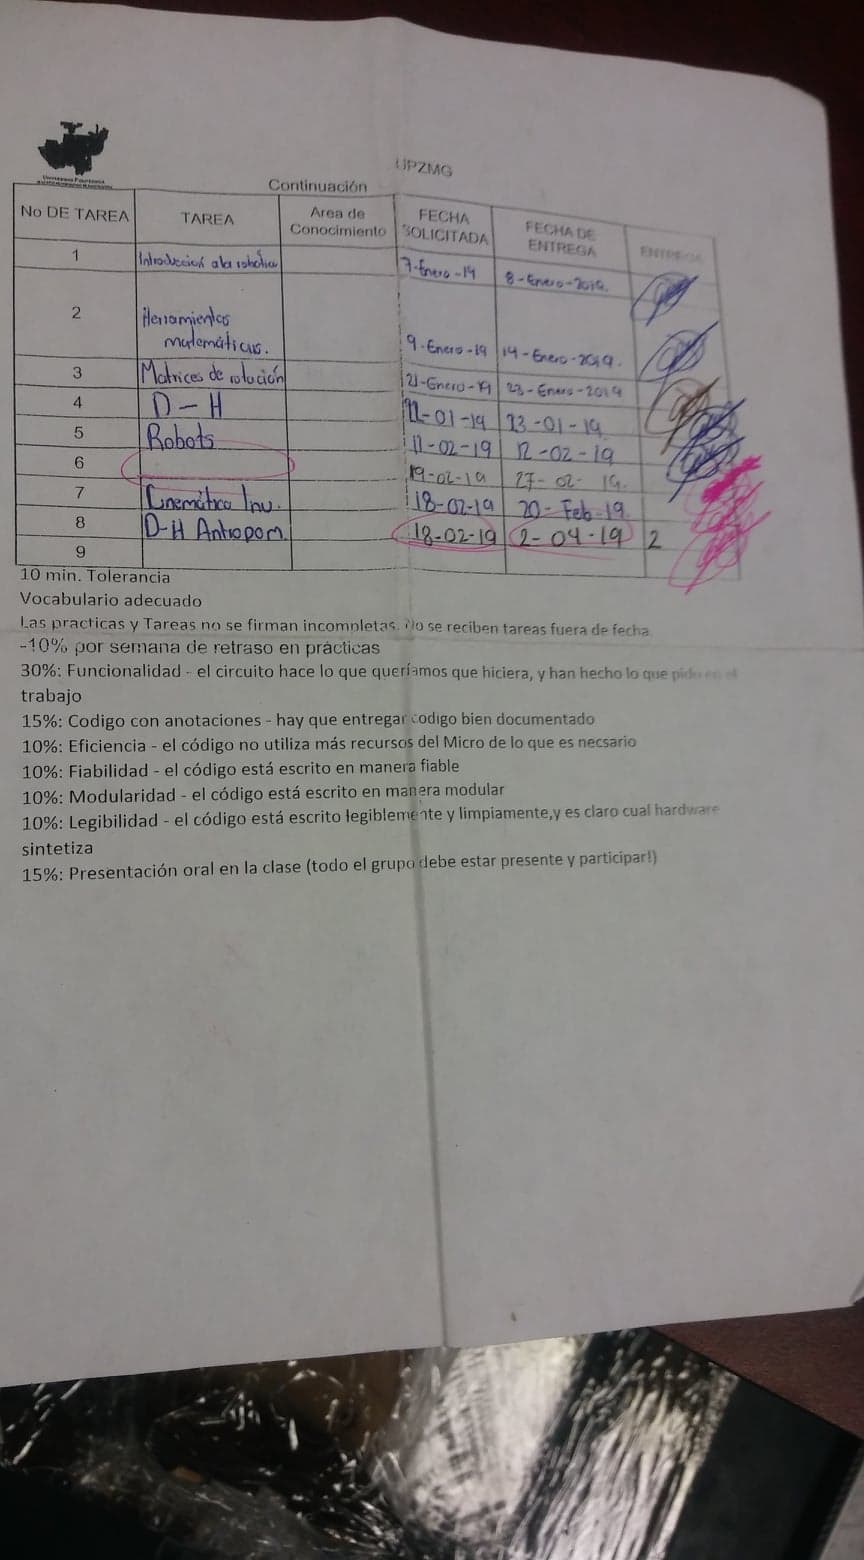 UPZMG
Continuación
No DE TAREA TAREA Area de Conocimiento FECHA SOLICITADA FECHA DE ENTREGA ENTREGA
1 Introduccion a la robotica 7-Enero-19 8-Enero-2019.
2 Herramientas matematicas. 9-Enero-19 14-Enero-2019.
3 Matrices de rotación 21-Enero-19 23-Enero-2019
4 D-H 22-01-19 23-01-19
5 Robots 11-02-19 12-02-19
6 19-02-19 27-02-19.
7 Cinemática Inv. 18-02-19 20-Feb-19.
8 D-H Antropom. 18-02-19 2-04-19 2
9
10 min. Tolerancia
Vocabulario adecuado
Las practicas y Tareas no se firman incompletas. No se reciben tareas fuera de fecha
-10% por semana de retraso en prácticas
30%: Funcionalidad - el circuito hace lo que queríamos que hiciera, y han hecho lo que pide en el
trabajo
15%: Codigo con anotaciones - hay que entregar codigo bien documentado
10%: Eficiencia - el código no utiliza más recursos del Micro de lo que es necsario
10%: Fiabilidad - el código está escrito en manera fiable
10%: Modularidad - el código está escrito en manera modular
10%: Legibilidad - el código está escrito legiblemente y limpiamente,y es claro cual hardware
sintetiza
15%: Presentación oral en la clase (todo el grupo debe estar presente y participar!)